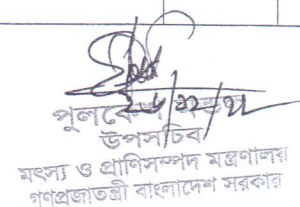 উপসচিব
মৎস্য ও প্রাণিসম্পদ মন্ত্রণালয়
গণপ্রজাতন্ত্রী বাংলাদেশ সরকার